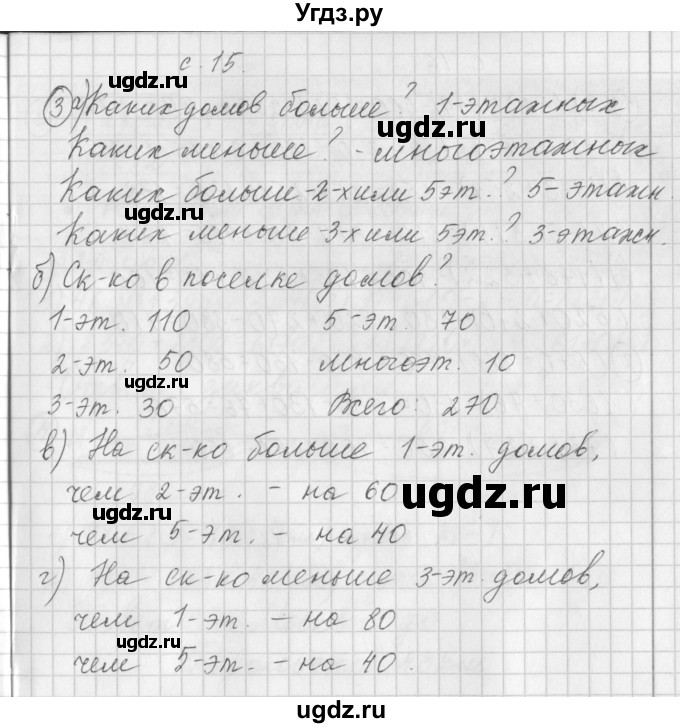 Угдз.ру
с. 15.
③ а) Каких домов больше? 1-этажных
Каких меньше? - многоэтажных
Каких больше -2-х или 5эт.? 5- этажн.
Каких меньше -3-х или 5эт.? 3-этажн.
б) Ск-ко в поселке домов?
1-эт. 110 5-эт. 70
2-эт. 50 многоэт. 10
3-эт. 30 Всего: 270
в) На ск-ко больше 1-эт. домов,
чем 2-эт. - на 60
чем 5-эт. - на 40
г) На ск-ко меньше 3-эт. домов,
чем 1-эт. - на 80
чем 5-эт. - на 40.
ugdz.ru
ugdz.ru
ugdz.ru
ugdz.ru
ugdz.ru
ugdz.ru
ugdz.ru
ugdz.ru
ugdz.ru